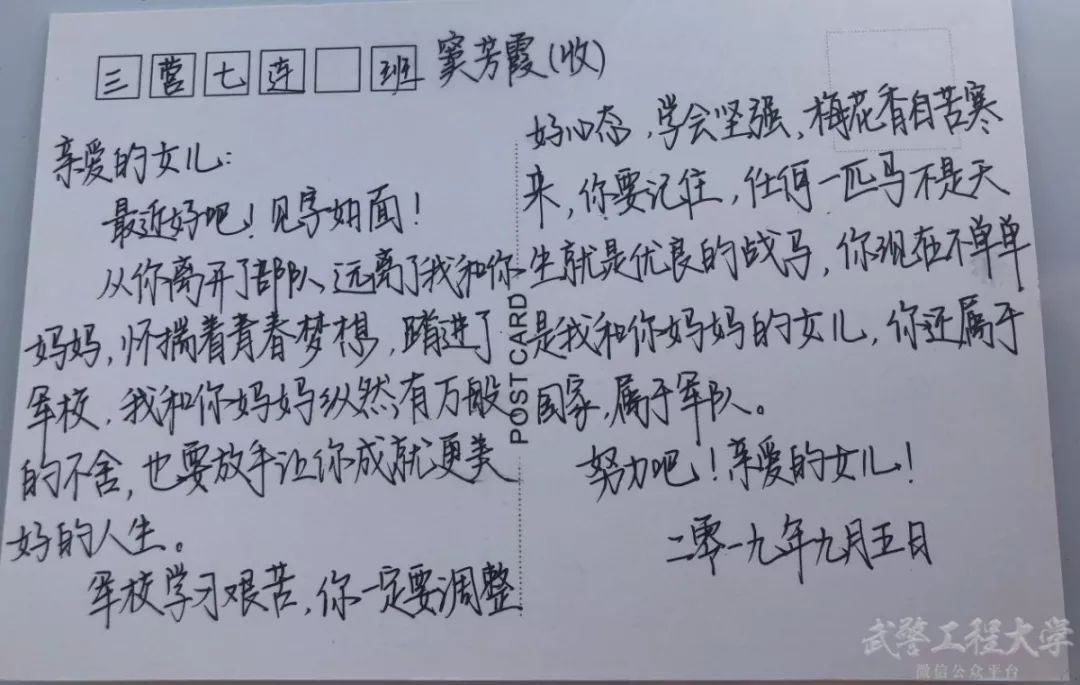 三营七连 班 窦芳霞(收)
亲爱的女儿:
最近好吧!见字如面!
从你离开了部队,远离了我和你
妈妈,怀揣着青春梦想,踏进了
军校,我和你妈妈纵然有万般
的不舍,也要放手让你成就更美
好的人生。
军校学习艰苦,你一定要调整
POST CARD
好心态,学会坚强,梅花香自苦寒
来,你要记住,任何一匹马不是天
生就是优良的战马,你现在不单单
是我和你妈妈的女儿,你还属于
国家,属于军队。
努力吧!亲爱的女儿!
二零一九年九月五日
武警工程大学
微信公众平台